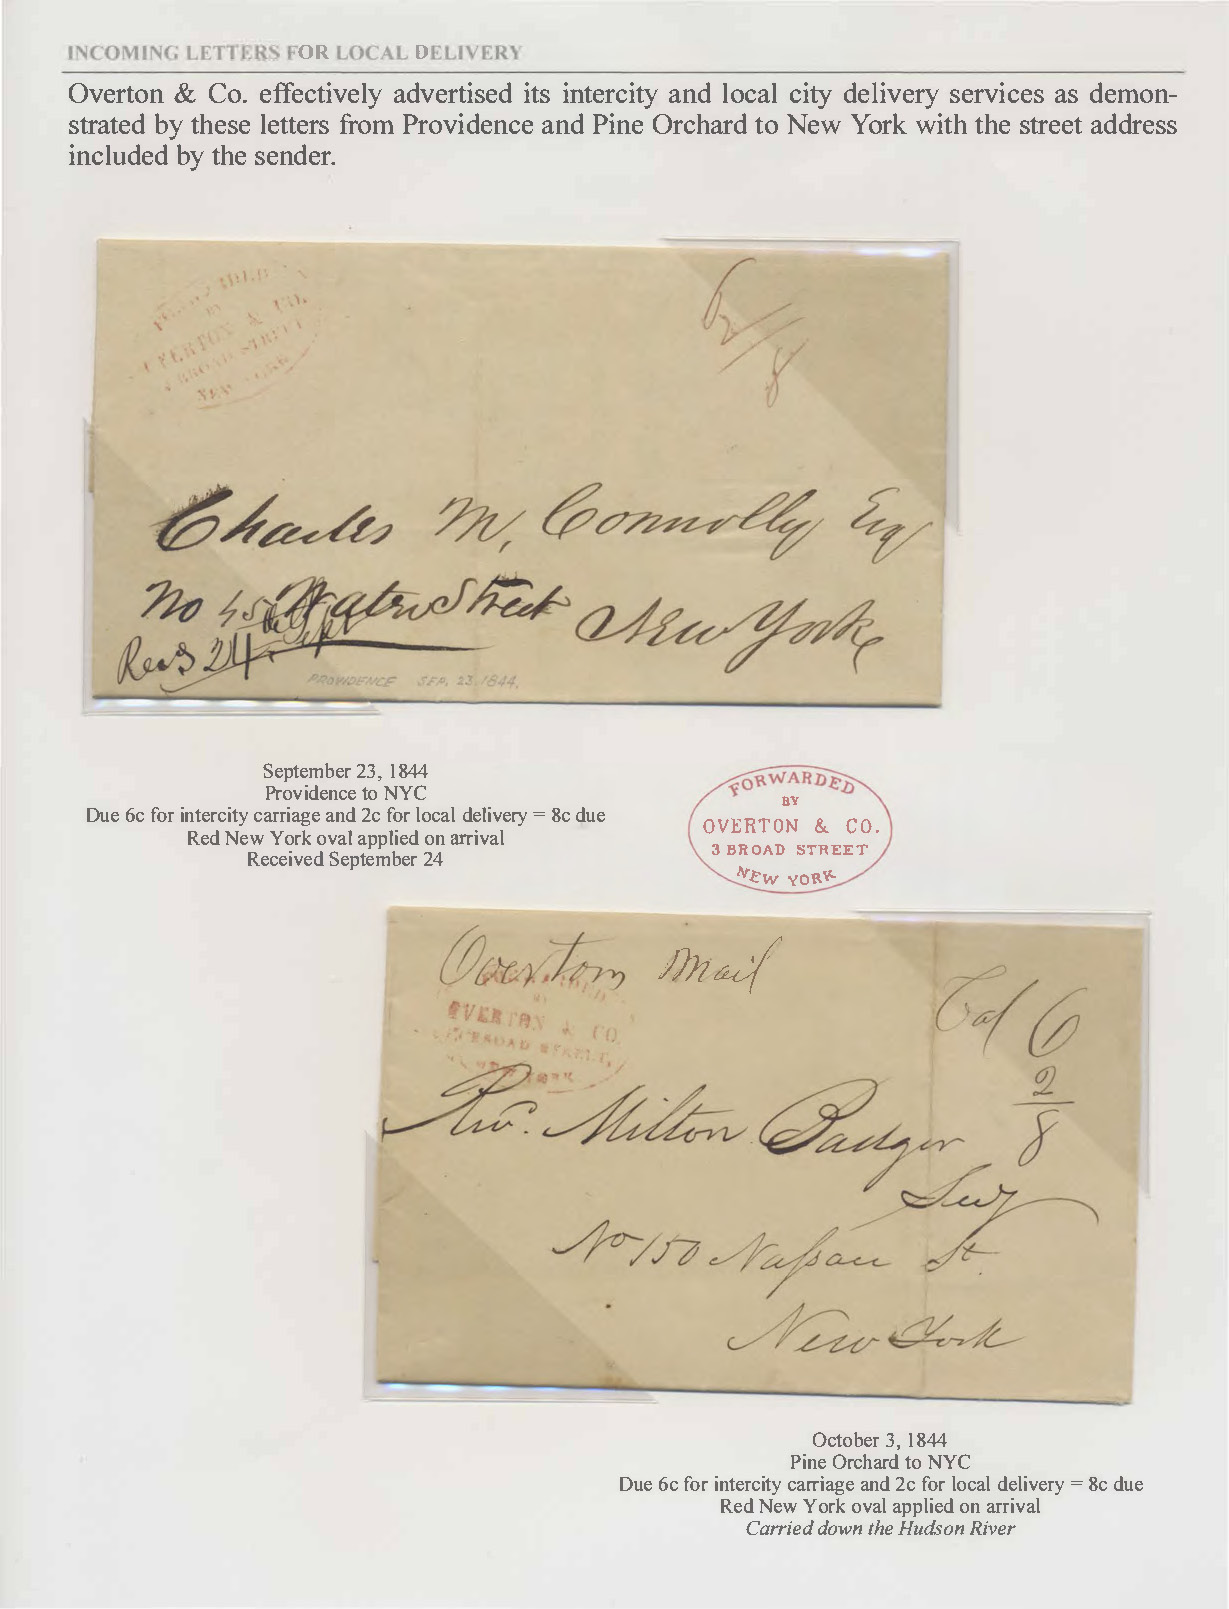 INCOMING LETTERS FOR LOCAL DELIVERY
Overton & Co. effectively advertised its intercity and local city delivery services as demon-
strated by these letters from Providence and Pine Orchard to New York with the street address
included by the sender.
OVERTON & CO.
BROAD STREET
NEW YORK
6
2/
8
Charles M. Connolly Esq
No 45 Water Street New York
24th Sept
PROVIDENCE SEP. 23. 1844.
September 23, 1844
Providence to NYC
Due 6c for intercity carriage and 2c for local delivery = 8c due
Red New York oval applied on arrival
Received September 24
FORWARDED
BY
OVERTON & CO.
3 BROAD STREET
NEW YORK
Overton Mail
FORWARDED
BY
OVERTON & CO.
3 BROAD STREET,
NEW YORK
6
2
8
Rev. Milton Badger
No 150 Nassau St.
New York
October 3, 1844
Pine Orchard to NYC
Due 6c for intercity carriage and 2c for local delivery = 8c due
Red New York oval applied on arrival
Carried down the Hudson River